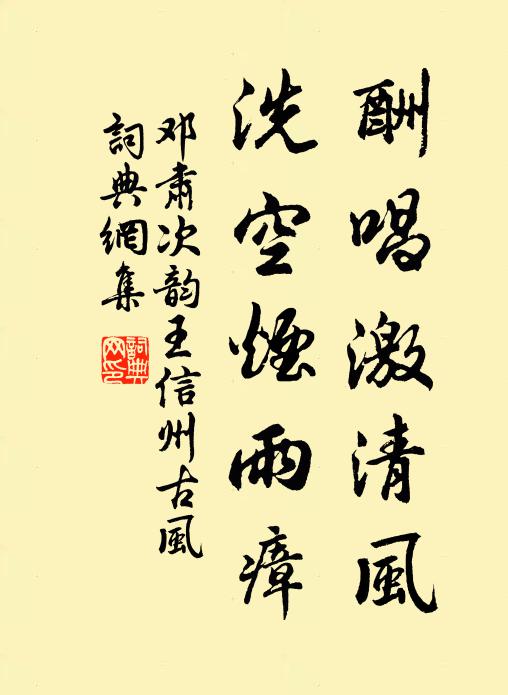 酬唱激清風
洗空煙雨瘴
邓肅次韵王信州古風
詞典網集
詞典網印